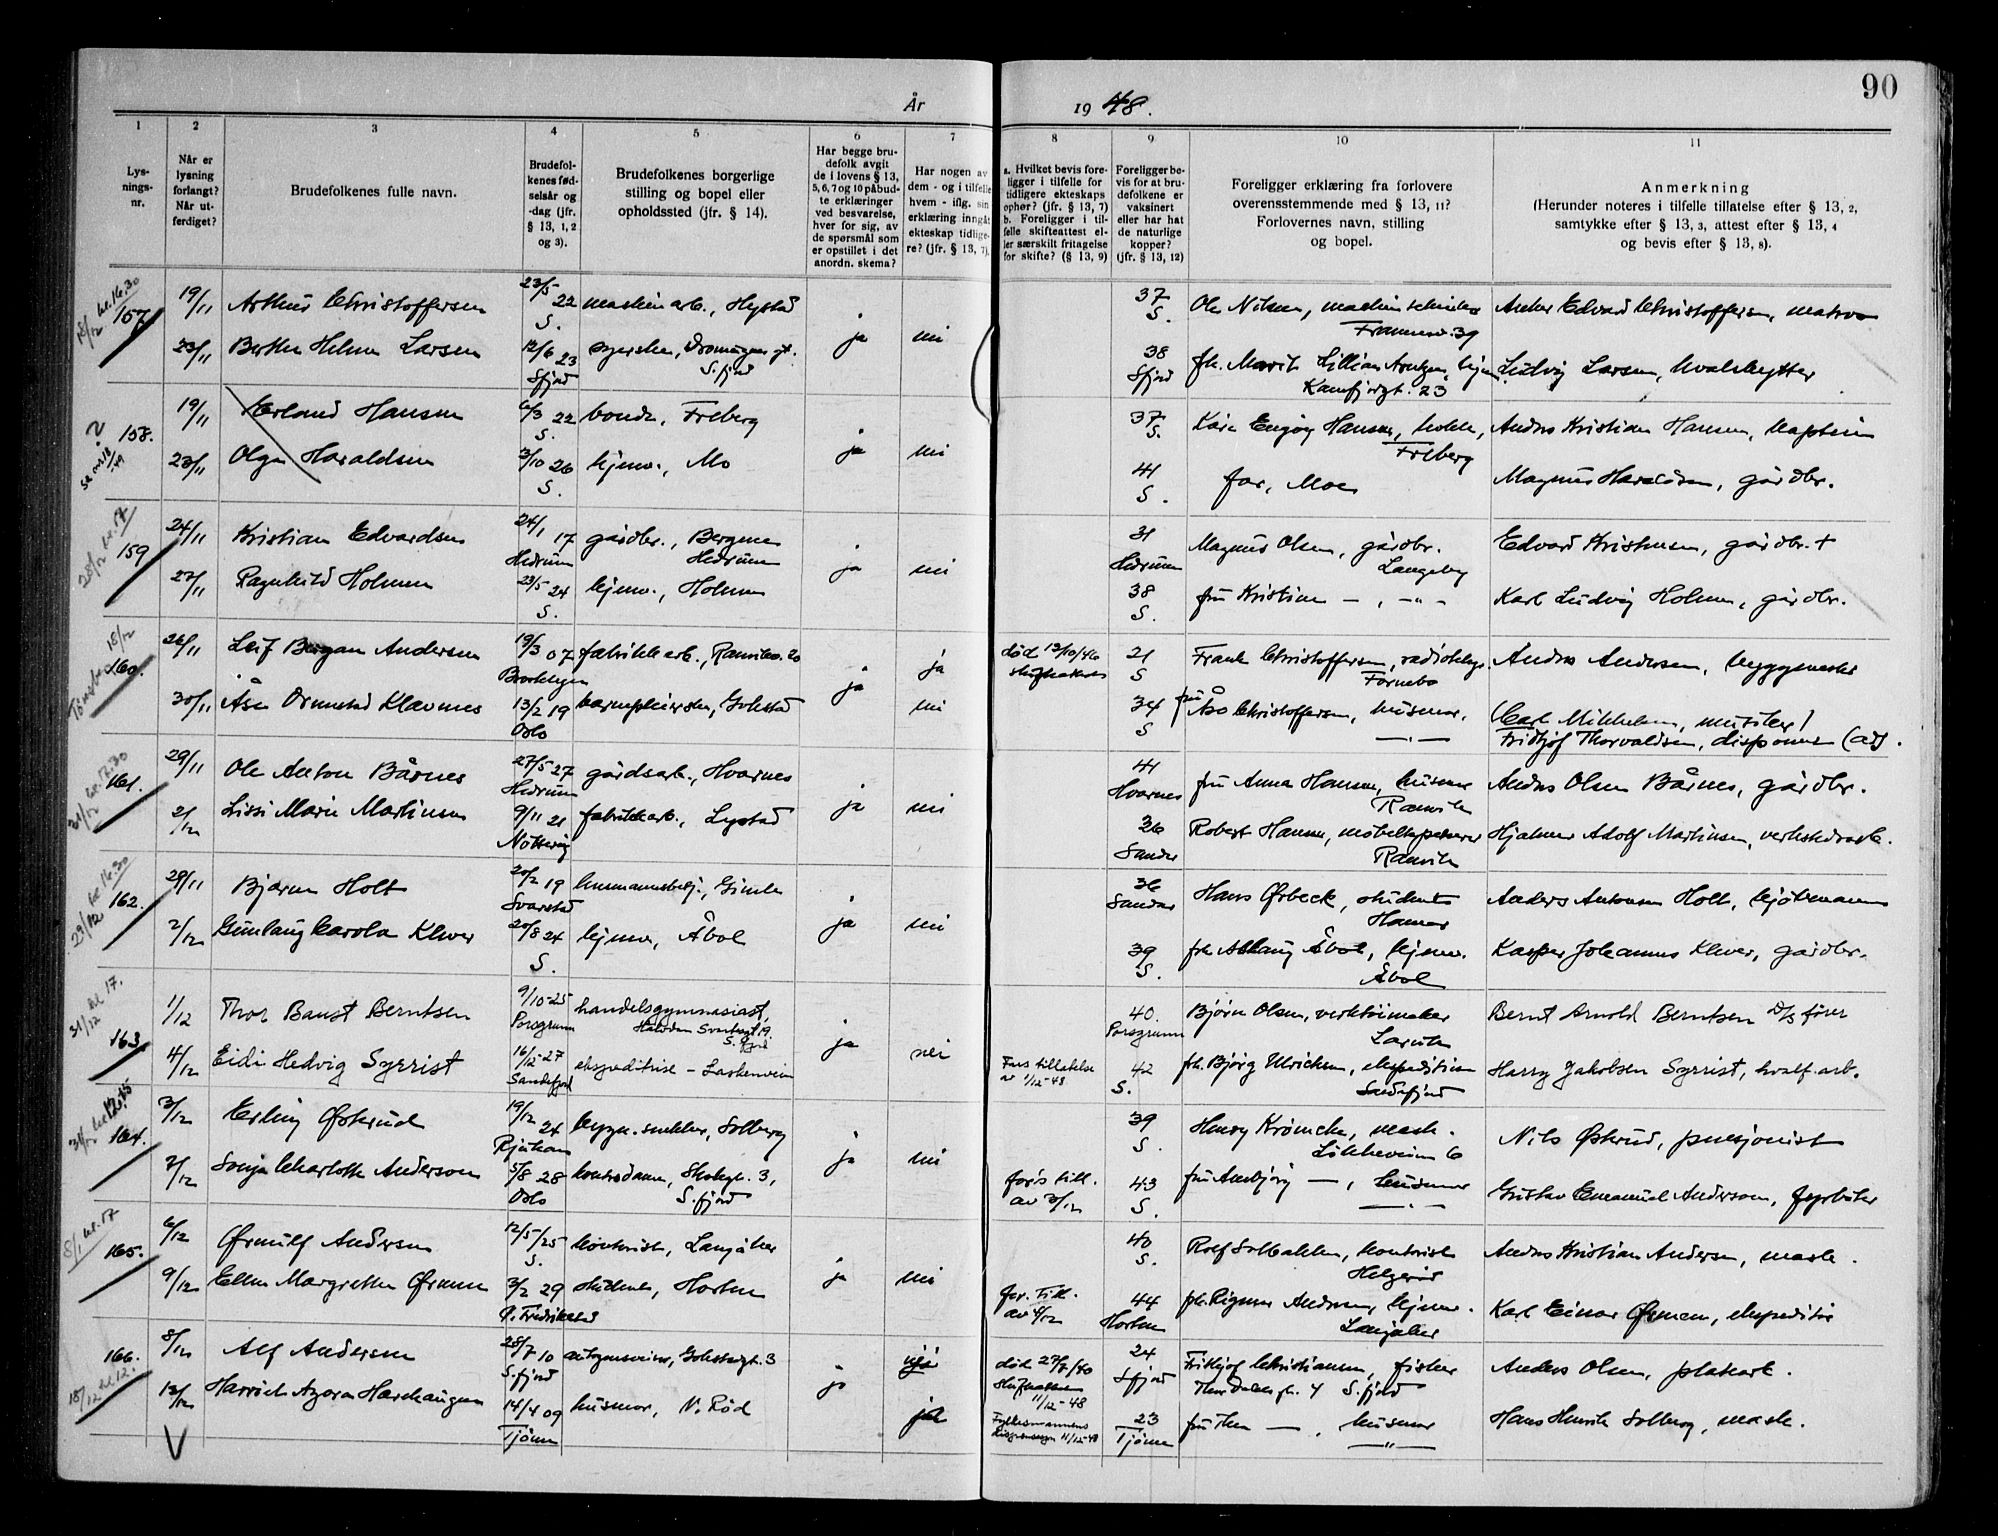 90
År 1948.
1 2 3 4 5 6 7 8 9 10 11
Lys-
nings-
nr.
Når er
lysning
forlangt?
Når ut-
ferdiget?
Brudefolkenes fulle navn.
Brudefol-
kenes fød-
selsår og
-dag (jfr.
§ 13, 1, 2
og 3).
Brudefolkenes borgerlige
stilling og bopel eller
opholdssted (jfr. § 14).
Har begge bru-
defolk avgit
de i lovens § 13,
5, 6, 7 og 10 påbud-
te erklæringer
ved besvarelse,
hver for sig, av
de spørsmål som
er opstillet i det
anordn. skema?
Har nogen av
dem - og i tilfelle
hvem - iflg. sin
erklæring inngåt
ekteskap tidlige-
re? (jfr. § 13, 7).
a. Hvilket bevis fore-
ligger i tilfelle for
tidligere ekteskaps
ophør? (jfr. § 13, 7)
b. Foreligger i til-
felle skifteattest el-
ler særskilt fritagelse
for skifte? (§ 13, 9)
Foreligger be-
vis for at bru-
defolkene er
vaksinert
eller har hat
de naturlige
kopper?
(jfr. § 13, 12)
Foreligger erklæring fra forlovere
overensstemmende med § 13, 11?
Forlovernes navn, stilling
og bopel.
Anmerkning
(Herunder noteres i tilfelle tillatelse efter § 13, 2,
samtykke efter § 13, 3, attest efter § 13, 4
og bevis efter § 13, 8).
18/12 kl. 16.30
157 19/11 Arthur Christoffersen 23/5 22 maskinarb., Hystad 37 Ole Nilsen, Andor Edvard Christoffersen, matros
S. ja nei S. Framnesv. 39
23/11 Berthe Helene Larsen 12/6 23 syerske, 38 frk. Marit Lillian Ludvig Larsen, hvalskytter
Sfjord S.fjord Sfjord Kamfjordgt. 23
158. 19/11 Erland Hansen 6/3 22 bonde, Freberg 37 Kåre Hansen, Anders Kristian Hansen, kaptein
S. ja nei S. Freberg
23/11 Olga Haraldsen 3/10 26 hjemv., Mo 41 far, Moe Magnus Haraldsen, gårdbr.
S. S.
28/12 kl. 17
159 24/11 Kristian Edvardsen 24/1 17 gårdbr., Bergene 31 Magnus Olsen, gårdbr. Edvard Kristensen, gårdbr. +
Hedrum Hedrum ja nei Hedrum Langeby
27/11 Ragnhild Holmen 23/5 24 hjemv., Holmen 38 fru Kristine — , -"- Karl Ludvig Holmen, gårdbr.
S. S.
18/12
160. 26/11 Leif Bergan Andersen 19/3 07 fabrikkarb., Ranvikv. 20 ja død 13/10/46 21 Frank Christoffersen, Anders Andersen, byggmester
ja S Fornebo
30/11 Åse Ormestad Klavnes 13/2 19 barnepleierske, Gokstad nei 34 fru Åse Christoffersen, husmor. (Carl Mikkelsen, musiker)
Oslo S — " — Fridtjof Thorvaldsen, disponent (ad).
31/12 kl. 12.30
161. 29/11 Ole Anton Bårnes 27/5 27 gårdsarb., Hvarnes 41 fru Anna Hansen, husmor Anders Olsen Bårnes, gårdbr.
Hedrum ja nei Hvarnes Ranvik
2/12 Lissi Marie Martinsen 9/11 21 fabrikkarb., Lystad 26 Robert Hansen, møbeltapetserer Hjalmar Adolf Martinsen, verkstedarb.
Nøtterøy Sandar Ranvik
29/12 kl. 16.30
162. 29/11 Bjarne Holt 20/2 19 Gimle 36 Hans Ørbeck, student Anders Antonsen Holt, kjøbmann
Svarstad ja nei Sandar Hamar
2/12 Gunlaug Carola Klever 20/8 24 hjemv, Åbol 39 frk. Aslaug Åbol, hjemv. Kasper Johannes Klever, gårdbr.
S. S. Åbol
31/12 kl 17.
163. 1/12 Thor Banst Berntsen 9/10-25 handelsgymnasiast, 40. Bjørn Olsen, verktøimaker Bernt Arnold Berntsen D/S fører
Porsgrunn Halvdan Svartesgt 19 S.fjord ja nei Porsgrunn Larvik
4/12 Eidi Hedvig Syrrist 16/12-27 ekspeditrise - Laskenveien Fars tillatelse av 1/12-48 42 frk. Bjørg Ulrichsen, ekspeditrise Harry Jakobsen Syrrist, hvalf. arb.
Sandefjord S. Sandefjord
31/12 kl. 12.15
164. 3/12 Erling Øskrud 19/12 24 bygn. snekker, Solberg 39 Henry Krömcke, mask. Nils Øskrud, pensjonist
Rjukan ja nei S. Lökkeveien 6
7/12 Sonja Charlotte Anderson 5/8 28 kontordame, Skolegt. 3, fars till. av 3/12 43 fru Annbjørg — , husmor Gustav Emanuel Anderson, fyrbøter
Oslo S.fjord S. — " —
8/1 kl. 17
165. 6/12 Ørnulf Andersen 12/5/25 kontorist, Langåker 40 Rolf Solbakken, kontorist Anders Kristian Andersen, mask.
S. ja nei S. Helgerød
9/12 Ellen Margrethe Ørmen 3/2 29 student, Horten far. Till. av 4/12 44 frk. Rigmor Andersen, hjemv. Karl Einar Ørmen, ekspeditør
Ø. Fredrikstad Horten Langåker
18/12 kl 12.
166. 8/12 Alf Andersen 28/7 10 Gokstadgt. 3 død 27/7/40 24 Fridtjof Christiansen, fisker Anders Olsen, platearb.
S.fjord ja 11/12-48 Sfjord Thor Dahls gt. 4 S.fjord
13/12 Harriet Agora Hærehaugen 14/4 09 husmor, N. Rød ja Fylkesmannens 11/12-48 23 fru Thea — , husmor Hans Henrik Solberg, mask.
Tjøme Tjøme — " —
V